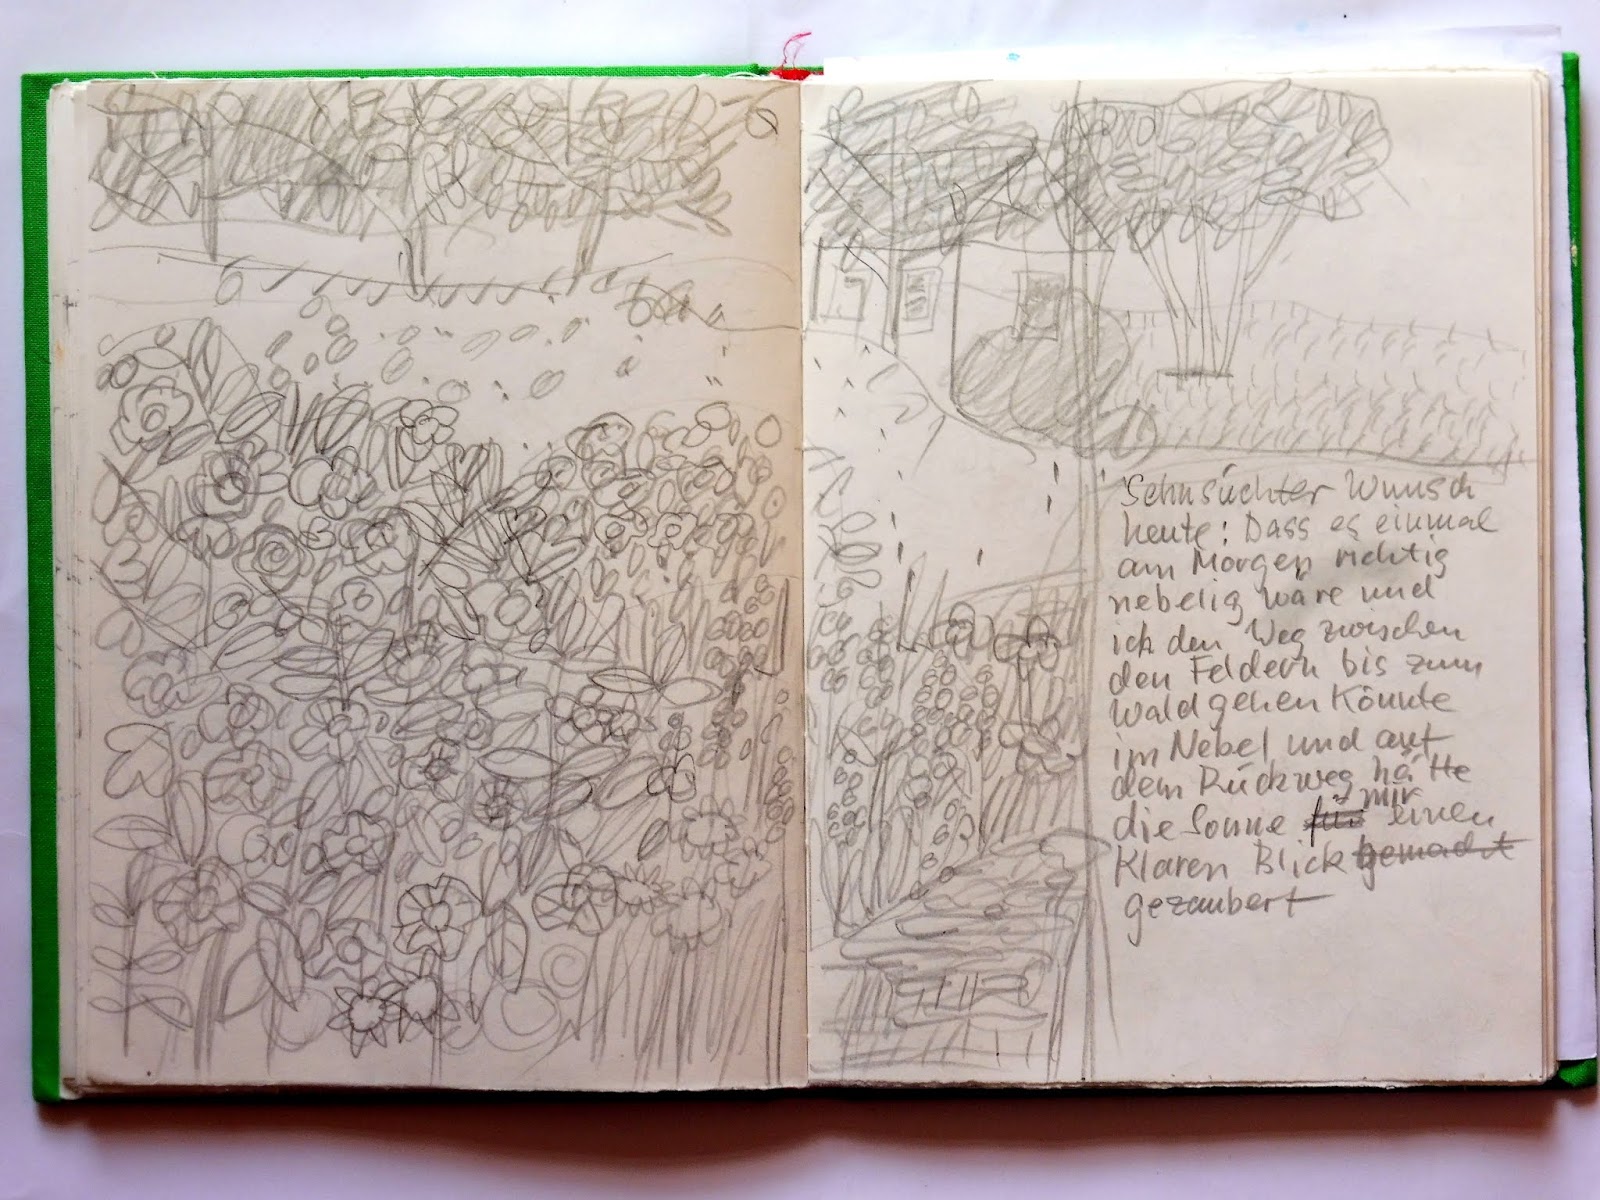 Sehnsüchter Wunsch
heute: Dass es einmal
am Morgen richtig
nebelig wäre und
ich den Weg zwischen
den Feldern bis zum
Wald gehen könnte
im Nebel und auf
dem Rückweg hätte
die Sonne für mir einen
klaren Blick gemacht
gezaubert